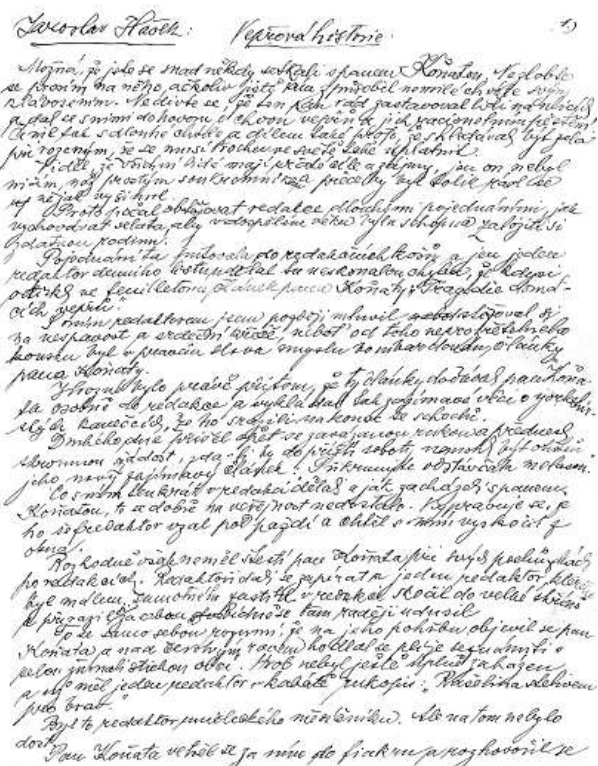 Jaroslav Hašek: Vepřová historie. 1)
Možná, že jste se snad někdy setkali s panem Koňatou. Nezlobte
se prosím na něho, ačkoliv jistě vám způsobil nemilé chvíle svým
. Nedivte se, že ten pán rád zastavoval lidi na ulicích
a dal se s nimi do hovoru o chovu vepřů a jich racionelním pěstění.
Činil tak z dlouhé chvíle a dílem také proto, že shledával být zcela
přirozeným, že se musí trochu ve světě také uplatnit.
Viděl, že všichni lidé mají své zájmy, jen on nebyl
ničím, než prostým soukromníkem přece by byl tolik rád
už nějak vyšinul.
Proto počal obtěžovat redakce dlouhými pojednáními, jak
vychovávat selata, aby v dospělém věku byla schopna založiti si
řádnou rodinu.
Pojednání ta putovala do redakčních košů a jen jeden
redaktor denního listu udělal tu neskonalou chybu, že kdysi
otiskl ve feuilletonu článek pana Koňaty: "Tragedie domá-
cích vepřů."
S tím redaktorem jsem později mluvil stěžoval si
na nespavost a srdeční , neboť od toho neprozřetelného
kousku byl v pravém slova smyslu bombardován články
pana Koňaty.
Hrozné bylo právě přitom, že ty články donášel pan Koňa-
ta osobně do redakce a vykládal tak zajímavé věci o yorkšír-
ských kanečcích, že ho srazili nakonec se schodů.
Druhého dne přišel opět se zavázanou rukou a přednesl
skromnou žádost, zda-li by do příští soboty nemohl být otištěn
jeho nový zajímavý článek: "Přikrmujte odstavčata melasou."
Co s ním tenkrát v redakci dělali a jak zacházeli s panem
Koňatou, to se dobře na veřejnost nedostalo. Vypravuje se, že
ho šéfredaktor vzal pod paždí a chtěl s ním vyskočit z
okna.
Rozhodně však neměl štěstí pan Koňata při svých pochůzkách
po redakcích. Redaktoři dali se zapírat a jeden redaktor, který
byl mdlem, samoten zastižen v redakci skočil do velké skříně
a přirazil za sebou se tam raději udusil.
To se samo sebou rozumí, že na jeho pohřbu objevil se pan
Koňata a nad čerstvým rovem hodlal se přežije seznámiti s
celou žurnalistickou obcí. Hrob nebyl ještě úplně zaházen,
a už měl jeden redaktor v kabátě rukopis: "Vaselina sadlem
pro brav."
Byl to redaktor uměleckého měsíčníku. Ale na tom nebylo
dost.
Pan Koňata vetřel se za ním do fiakru a rozhovořil se